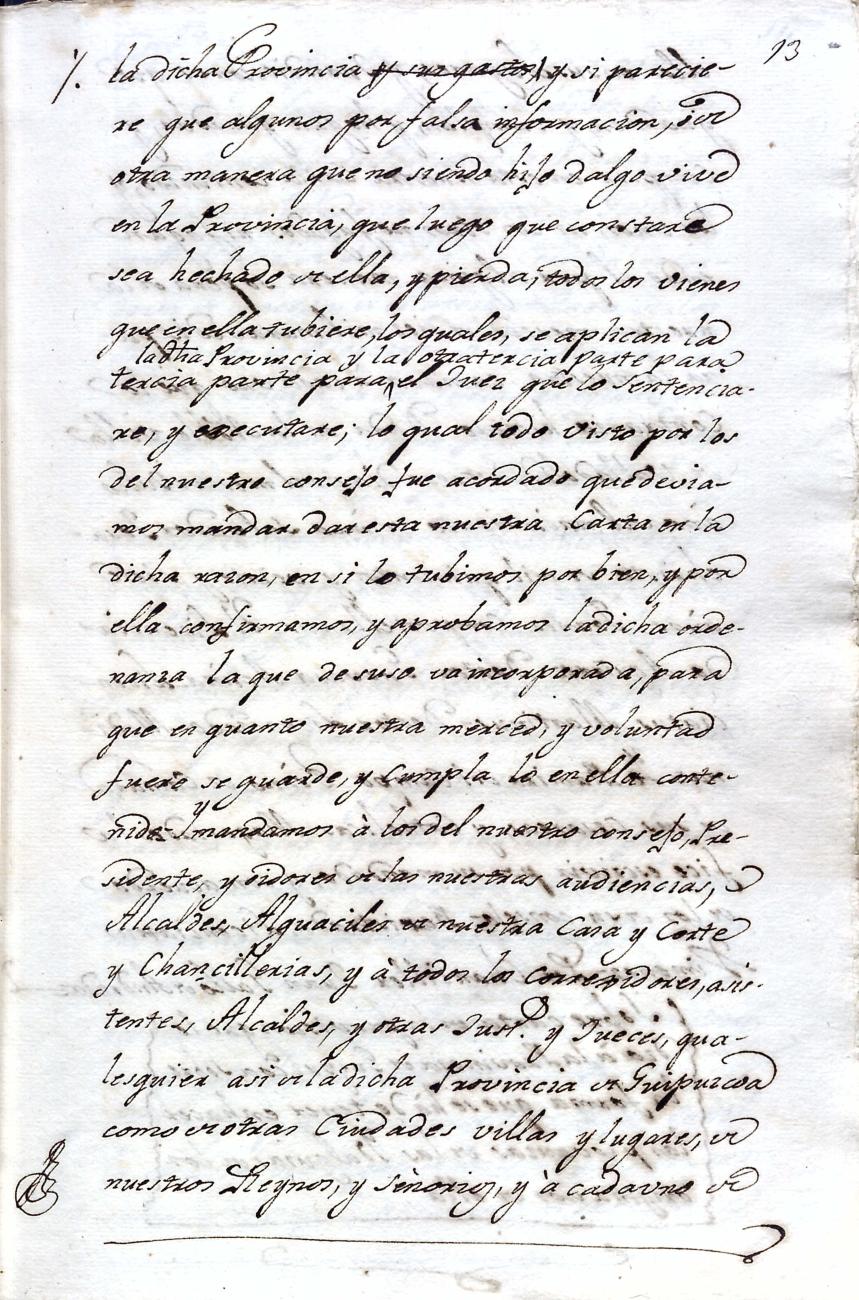 13
/. la dicha Provincia y sus gastos, y si parecie-
re que algunos por falsa informacion, o de
otra manera que no siendo hijo dalgo vive
en la Provincia, que luego que constare
sea hechado de ella, y pierda, todos los vienes
que en ella tubiere, los quales, se aplican la
la dha Provincia y la otra tercia parte para
tercia parte para el Juez que lo sentencia-
re, y executare; lo qual todo visto por los
del nuestro consejo fue acordado que devia-
mos mandar dar esta nuestra Carta en la
dicha razon, en si lo tubimos por bien, y por
ella confirmamos, y aprobamos la dicha orde-
nanza la que de suso va incorporada, para
que en quanto nuestra merced, y voluntad
fuere se guarde, y cumpla lo en ella conte-
y
nido mandamos à los del nuestro consejo, Pre-
sidente, y oidores de las nuestras audiencias,
Alcaldes, Alguaciles de nuestra Casa y Corte
y Chancillerias, y à todos los corregidores, asis-
tentes, Alcaldes, y otras Just.s y Jueces, qua-
lesquier asi de la dicha Provincia de Guipuzcoa
como de otras Ciudades villas y lugares, de
nuestros Reynos, y señorios, y à cada uno de